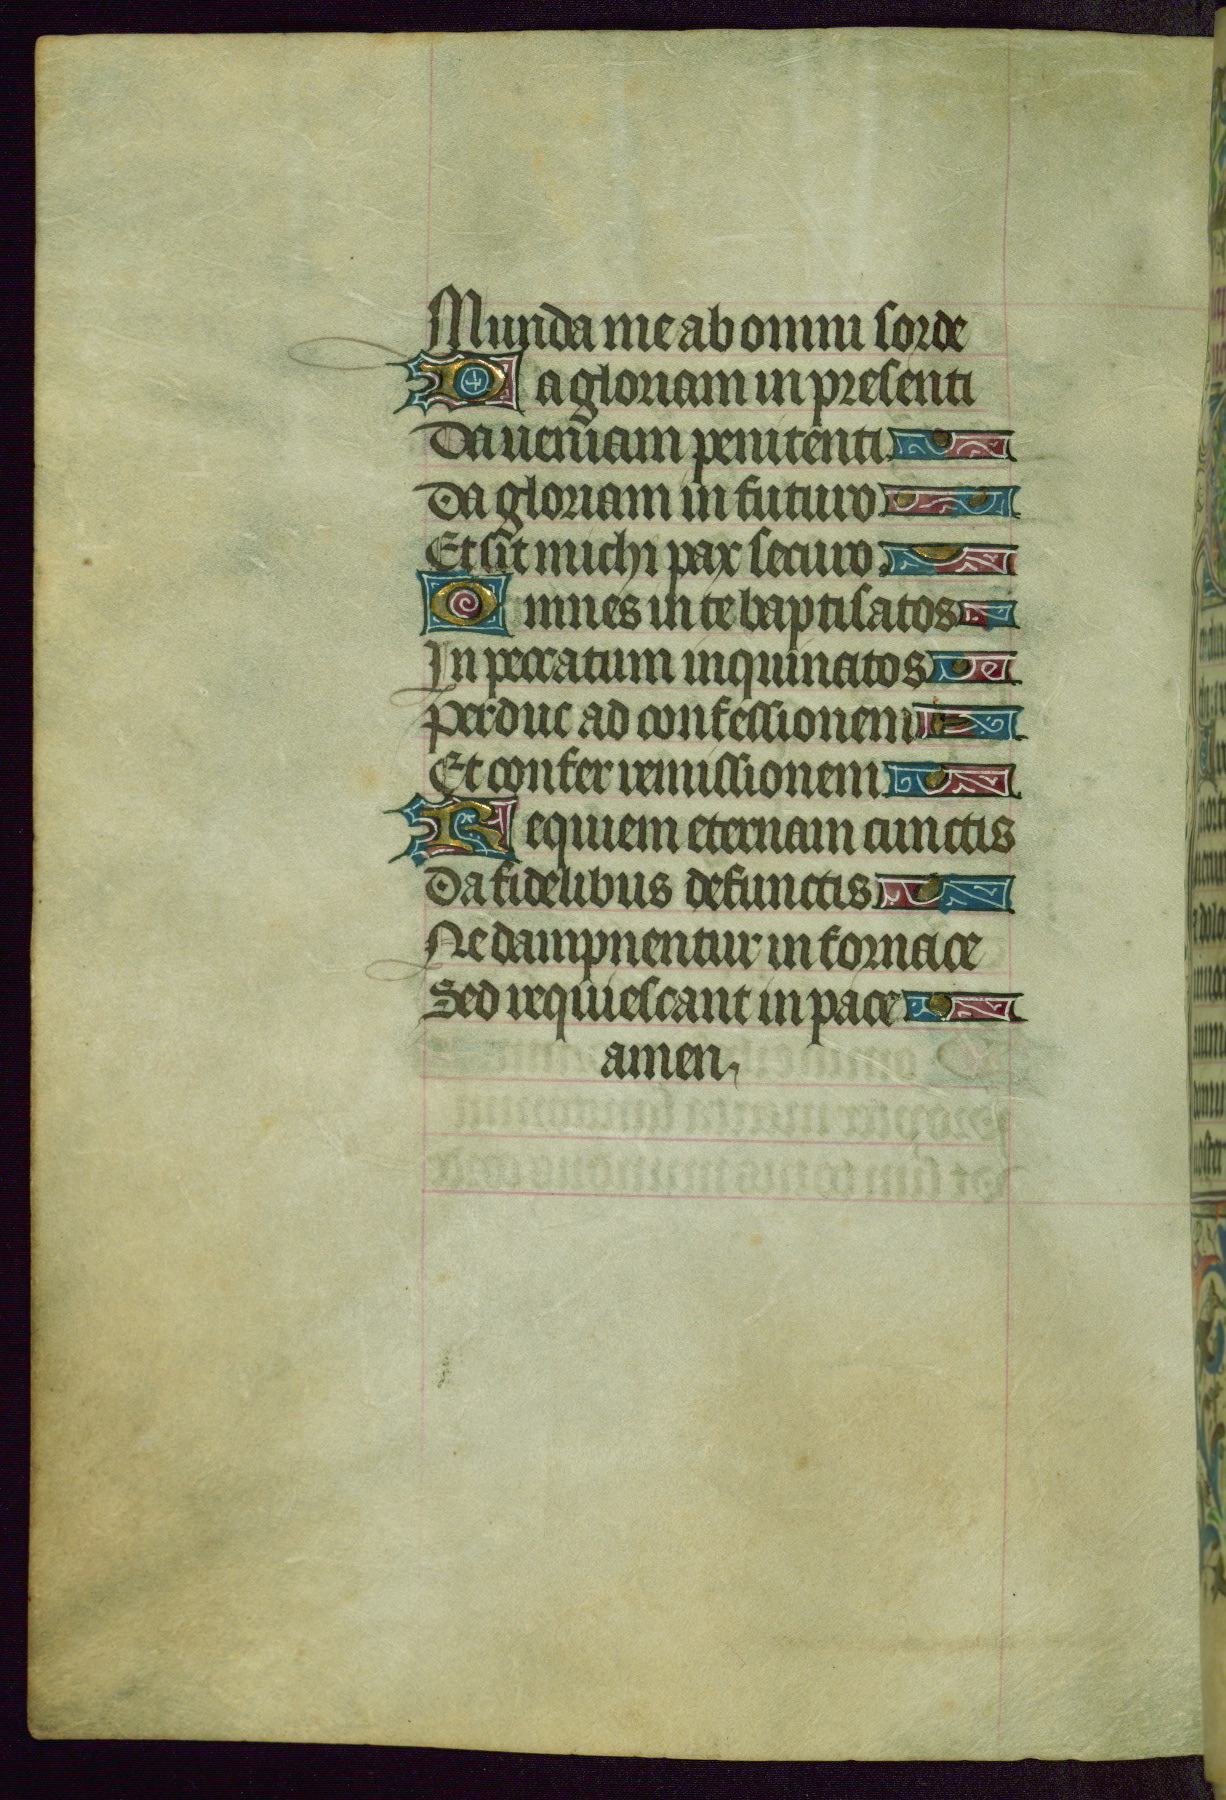 Munda me ab omni sorde
Da gloriam in presenti
Da veniam penitenti
Da gloriam in futuro
Et sit michi pax securo
Omnes in te baptisatos
In peccatum inquinatos
Perduc ad confessionem
Et confer remissionem
Requiem eternam cunctis
Da fidelibus defunctis
Ne dampnentur in fornace
Sed requiescant in pace
amen